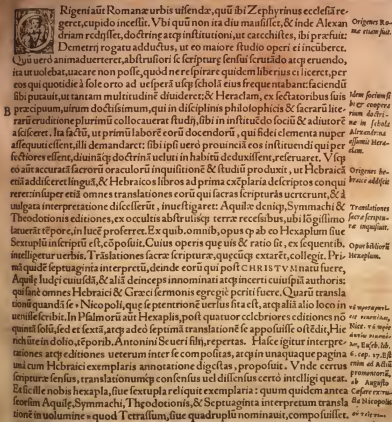 Rigeni aūt Romanæ urbis uisendæ, quū ibi Zephyrinus ecclesiā re-
geret, cupido incessit. Vbi quū non ita diu mansisset, & inde Alexan
driam redijsset, doctrinæ atq; institutioni, ut catechistes, ibi præfuit:
Demetrij rogatu adductus, ut eo maiore studio operi ei incūberet.
Quū uerò animaduerteret, abstrusiori se scripturæ sensui scrutādo atq; eruendo,
ita ut uolebat, uacare non posse, quòd ne respirare quidem liberius ei liceret, per
eos qui quotidie à sole orto ad uesperā usq; scholā eius frequentabant: faciendū
sibi putauit, ut tantam multitudinē diuideret: & Heraclam, ex sectatoribus suis
præcipuum, uirum doctissimum, qui in disciplinis philosophicis & sacrarū lite-
rarū eruditione plurimū collocauerat studij, sibi in instituēdo sociū & adiutorē
ascisceret. Ita factū, ut primū laborē eorū docendorū, qui fidei elementa nuper
assequuti essent, illi demandaret: sibi ipsi uerò prouincia eos instituendi qui per
fectiores essent, diuināq; doctrinā ueluti in habitū deduxissent, reseruaret. Vsq;
eò aūt accuratā sacrorū oraculorū inquisitionē & studiū produxit, ut Hebraicā
etiā addisceret linguā, & Hebraicos libros ad prima exēplaria descriptos conqui
reret: insuper etiā omnes translationes eorū qui sacras scripturas uerterunt, & à
uulgata interpretatione discesserūt, inuestigaret: Aquilæ deniq;, Symmachi &
Theodotionis editiones, ex occultis abstrusisq; terræ recessibus, ubi lōgissimo
latuerāt tēpore, in lucē proferret. Ex quib. omnib. opus qp ab eo Hexaplum siue
Sextuplū inscriptū est, cōposuit. Cuius operis quæ uis & ratio sit, ex sequentib.
intelligetur uerbis. Trāslationes sacræ scripturæ, quęcūq; extarēt, collegit. Pri-
mā quidē septuaginta interpretū, deinde eorū qui post CHRISTVM natū fuere,
Aquilę Iudęi cuiusdā, & aliā deinceps innominati atq; incerti cuiuspiā authoris:
qui sanè omnes Hebraici & Græci sermonis egregiè periti fuere. Quarū transla
tionū quandā se Nicopoli, quę se petentiōne uerius sita est, atq; aliā alio loco in
uenisse scribit. In Psalmorū aūt Hexaplis, post quatuor celebriores editiones nō
quintā solū, sed et sextā, atq; adeò septimā translationē se apposuisse ostēdit, Hie
richūte in dolio, tēporib. Antonini Seueri filij, repertas. Hasce igitur interpre-
tationes atq; editiones ueterum inter se compositas, atq; in unaquaque pagina
unà cum Hebraici exemplaris annotatione digestas, proposuit. Vnde certus
scripturæ sensus, translationumq; consensus uel dissensus certò intelligi queat.
Et sic ille nobis hexapla, siue sextupla reliquit exemplaria: quum quidem antea
seorsim Aquilę, Symmachi, Theodotionis, & Septuaginta interpretum transla
tionē in uolumine quod Tetrassum, siue quadruplū nominauit, composuisset.
B
Origenes Ro-
mæ etiam fuit.
Idem socium si
bi & cooper a
rum doctri-
næ in schola
Alexandrina
assumit Hera-
clam.
Origenes he-
braicè addiscit
Translationes
sacræ scripturæ
inquisiuit.
Opus bibliorū
Hexaplum.
Augusto
Nicopolis